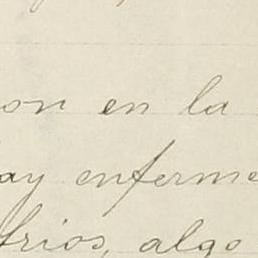 on en la
ay enferme
brios, algo